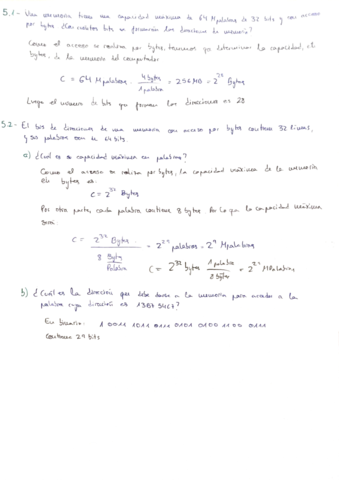 5.1.- Una memoria tiene una capacidad máxima de 64 Mpalabras de 32 bits y con acceso
por bytes ¿Con cuántos bits se formarán las direcciones de memoria?
Como el acceso se realiza por bytes, tenemos que determinar la capacidad, en
bytes, de la memoria del computador
C = 64 Mpalabras · 4 bytes / 1 palabra = 256 MB = 2^28 Bytes
Luego el número de bits que forman las direcciones es 28
5.2.- El bus de direcciones de una memoria con acceso por bytes contiene 32 líneas,
y sus palabras son de 64 bits.
a) ¿Cuál es su capacidad máxima en palabras?
Como el acceso se realiza por bytes, la capacidad máxima de la memoria
en bytes es:
C = 2^32 Bytes
Por otra parte, cada palabra contiene 8 bytes. Por lo que la capacidad máxima
será:
C = 2^32 Bytes / 8 Bytes/Palabra = 2^29 palabras = 2^9 Mpalabras
C = 2^32 bytes · 1 palabra / 8 bytes = 2^29 Mpalabras
b) ¿Cuál es la dirección que debe darse a la memoria para acceder a la
palabra cuya dirección es 13B75467?
En binario:
1 0011 1011 0111 0101 0100 1100 0111
Contiene 29 bits